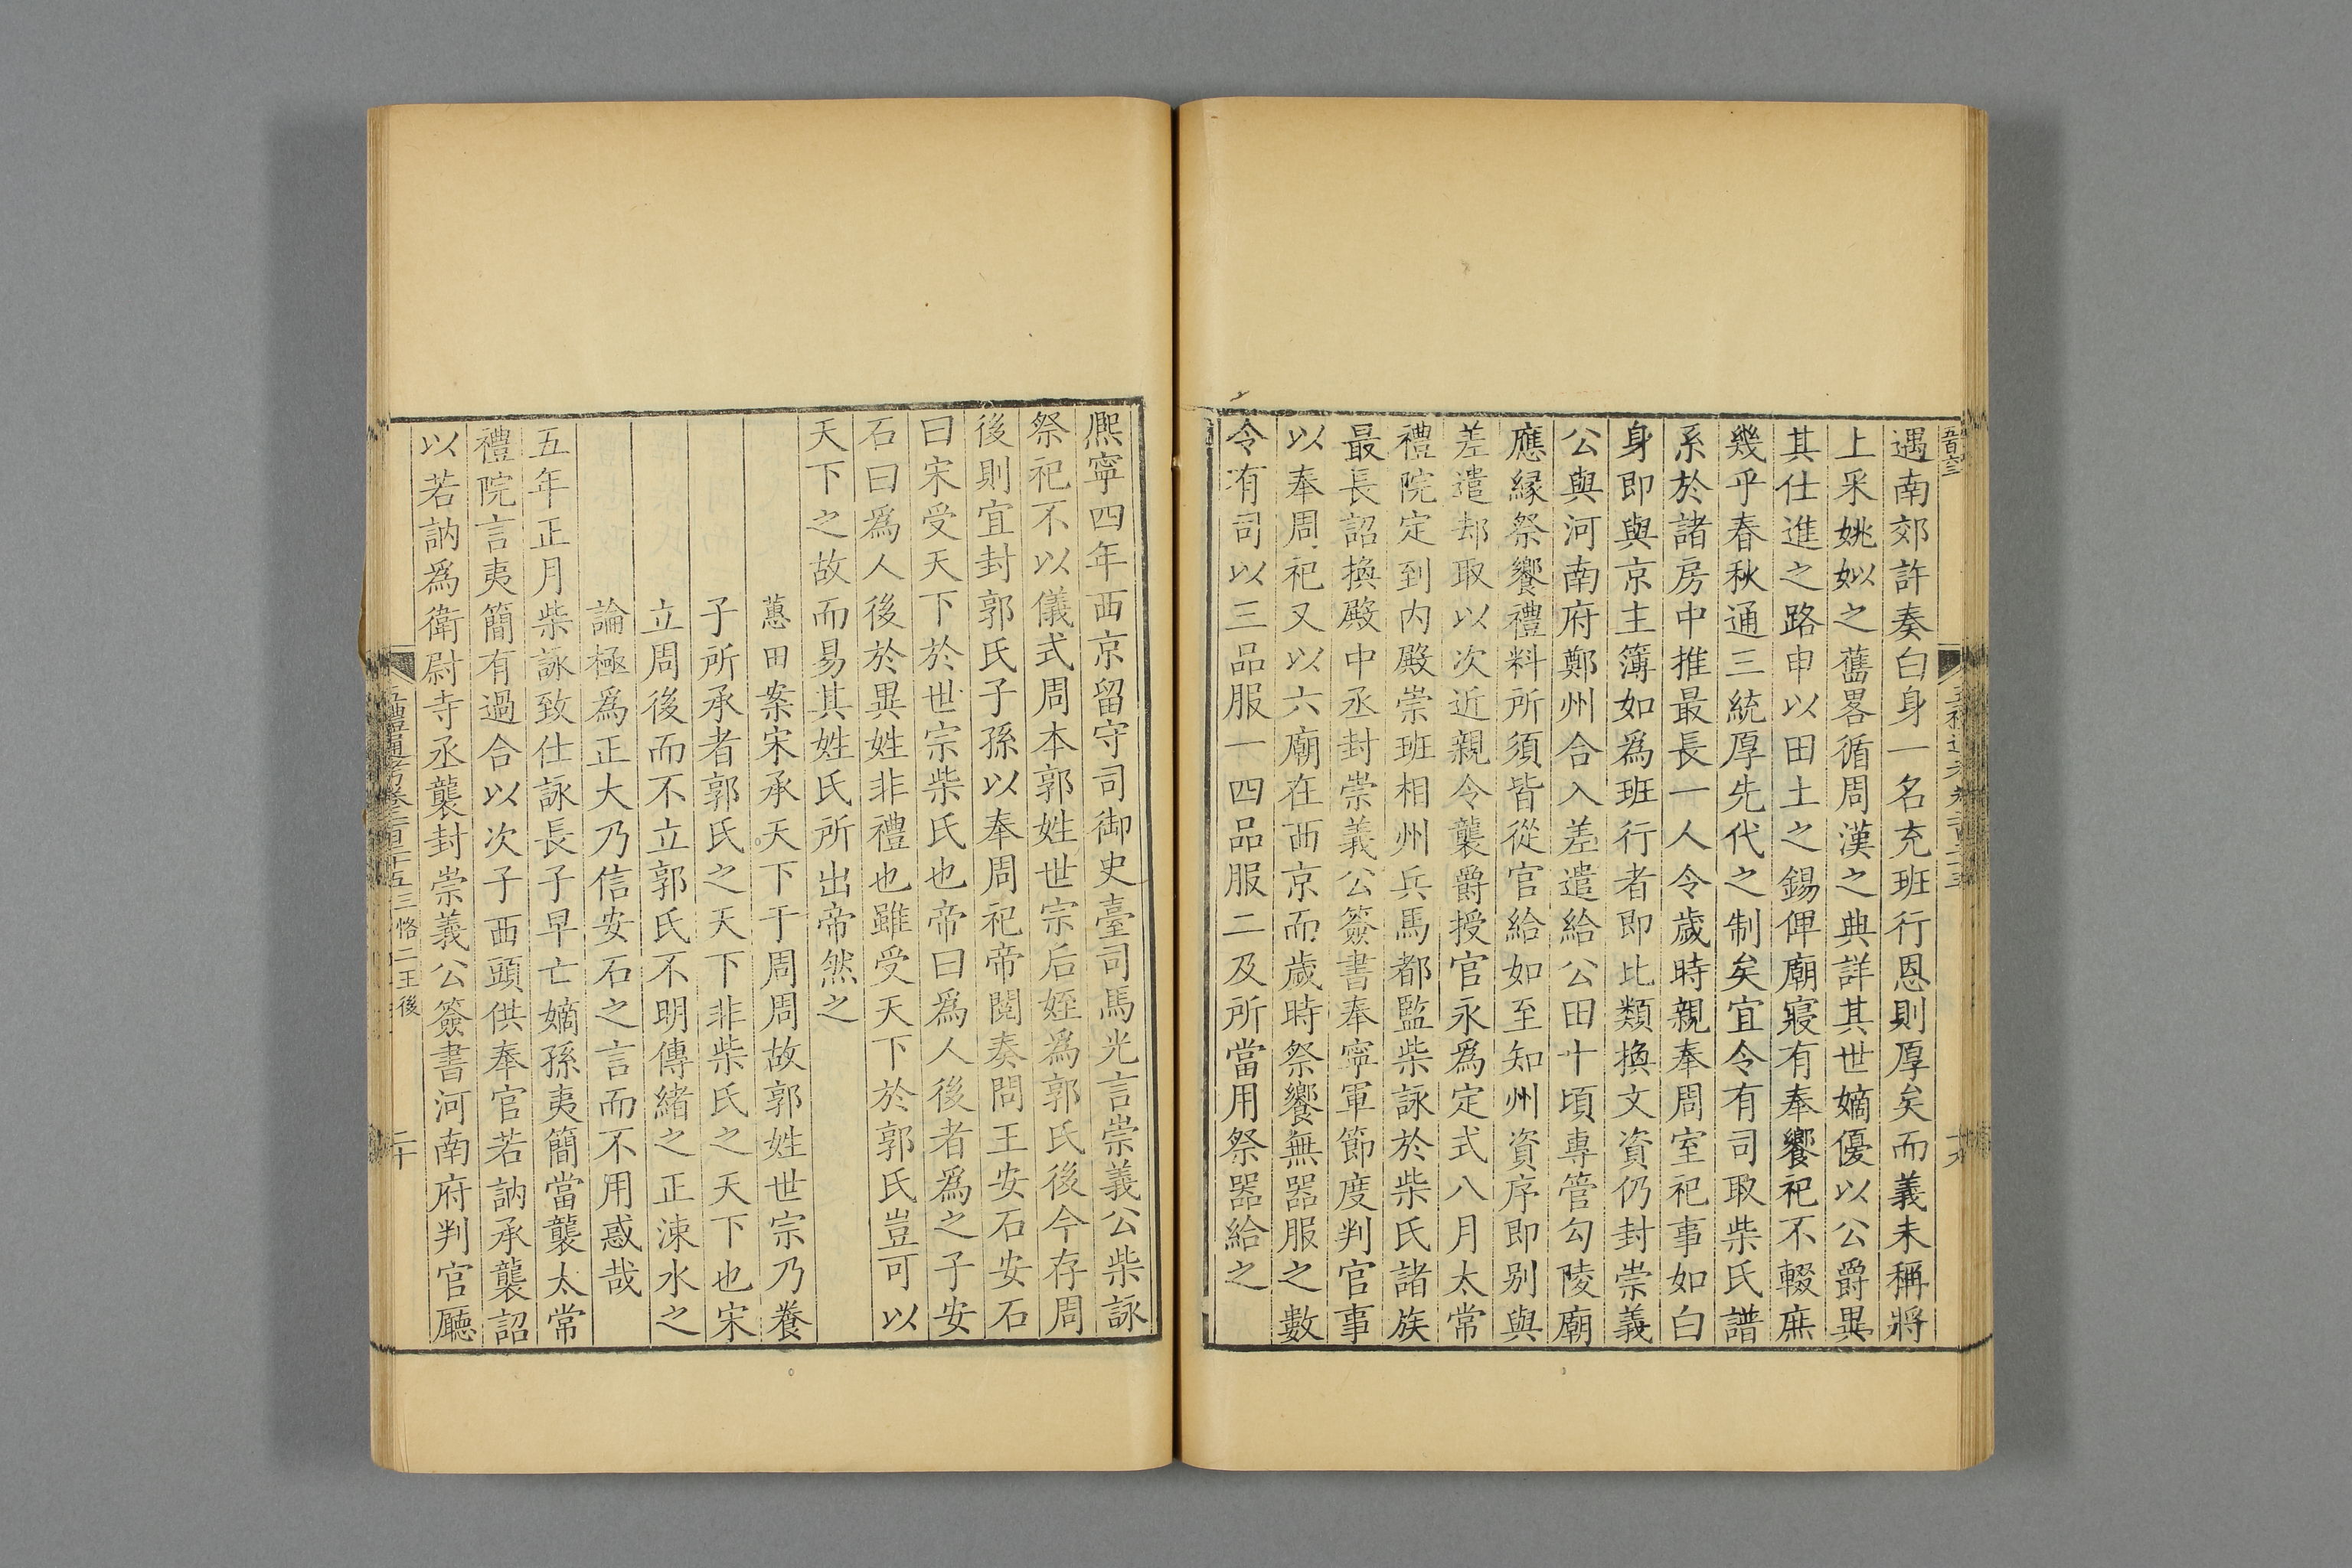 遇南郊許奏白身一名充班行恩則厚矣而義未稱將
上采姚姒之舊畧循周漢之典詳其世嫡優以公爵異
其仕進之路申以田土之錫俾廟寢有奉饗祀不輟庶
幾乎春秋通三統厚先代之制矣宜令有司取柴氏譜
系於諸房中推最長一人令歲時親奉周室祀事如白
身即與京主簿如爲班行者即比類換文資仍封崇義
公與河南府鄭州合入差遣給公田十頃專管勾陵廟
應縁祭饗禮料所須皆從官給如至知州資序即别與
差遣却取以次近親令襲爵授官永爲定式八月太常
禮院定到内殿崇班相州兵馬都監柴詠於柴氏諸族
最長詔換殿中丞封崇義公簽書奉寧軍節度判官事
以奉周祀又以六廟在西京而歲時祭饗無器服之數
令有司以三品服一四品服二及所當用祭器給之
熈寧四年西京留守司御史臺司馬光言崇義公柴詠
祭祀不以儀式周本郭姓世宗后姪爲郭氏後今存周
後則宜封郭氏子孫以奉周祀帝閱奏問王安石安石
曰宋受天下於世宗柴氏也帝曰爲人後者爲之子安
石曰爲人後於異姓非禮也雖受天下於郭氏豈可以
天下之故而易其姓氏所出帝然之
蕙田案宋承天下于周周故郭姓世宗乃養
子所承者郭氏之天下非柴氏之天下也宋
立周後而不立郭氏不明傳緒之正涑水之
論極爲正大乃信安石之言而不用惑哉
五年正月柴詠致仕詠長子早亡嫡孫夷簡當襲太常
禮院言夷簡有過合以次子西頭供奉官若訥承襲詔
以若訥爲衛尉寺丞襲封崇義公簽書河南府判官廳
五禮通考卷二百二十五 三恪二王後 二十